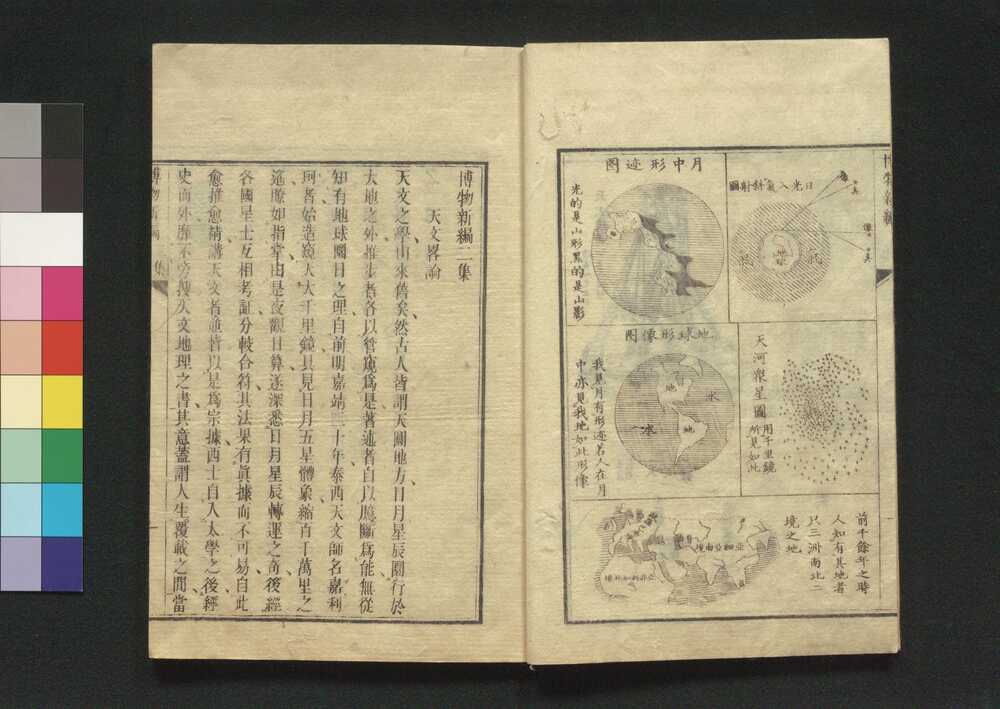 博物新編
日光入氣斜射圖
地球
月中形迹图
光的是山形黑的是山影
天河衆星圖
用千里鏡
所見如此
地球形像图
地
水
水
地
我見月有形迹若人在月
中亦見我地如此形像
前千餘年之時
人知有其地者
只三洲南北二
境之地
亞細亞南境
博物新編二集
天文畧論
天文之學由來舊矣然古人皆謂天圓地方日月星辰圜行於
大地之外推步者各以管窺爲是著述者自以臆斷爲能無從
知有地球圜日之理自前明嘉靖三十年泰西天文師名嘉利
珂者始造窺天大千里鏡具見日月五星體象縮百千萬里之
遙瞭如指掌由是夜觀日算遂深悉日月星辰轉運之奇後經
各國星士互相考証分較合符其法果有眞據而不可易自此
愈推愈精講天文者並皆以是爲宗據西士自入太學之後經
史而外靡不旁搜天文地理之書其意蓋謂人生覆載之間當